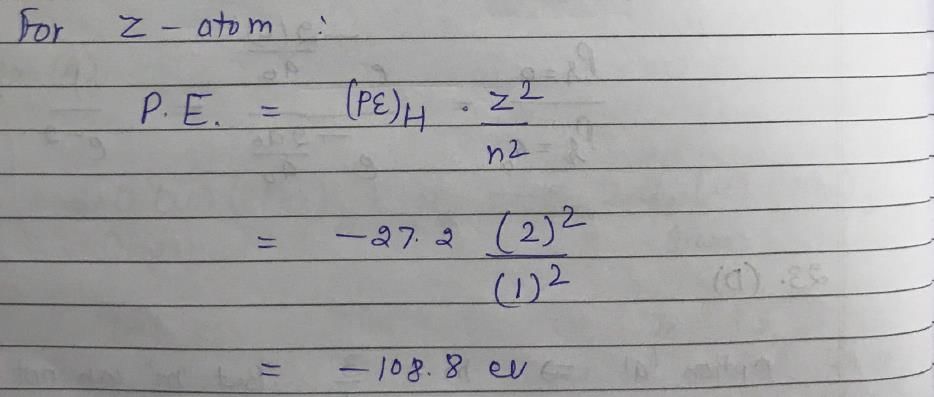 For Z - atom :
P.E. = (PE)H . Z²/n²
= -27.2 (2)²/(1)²
= -108.8 ev